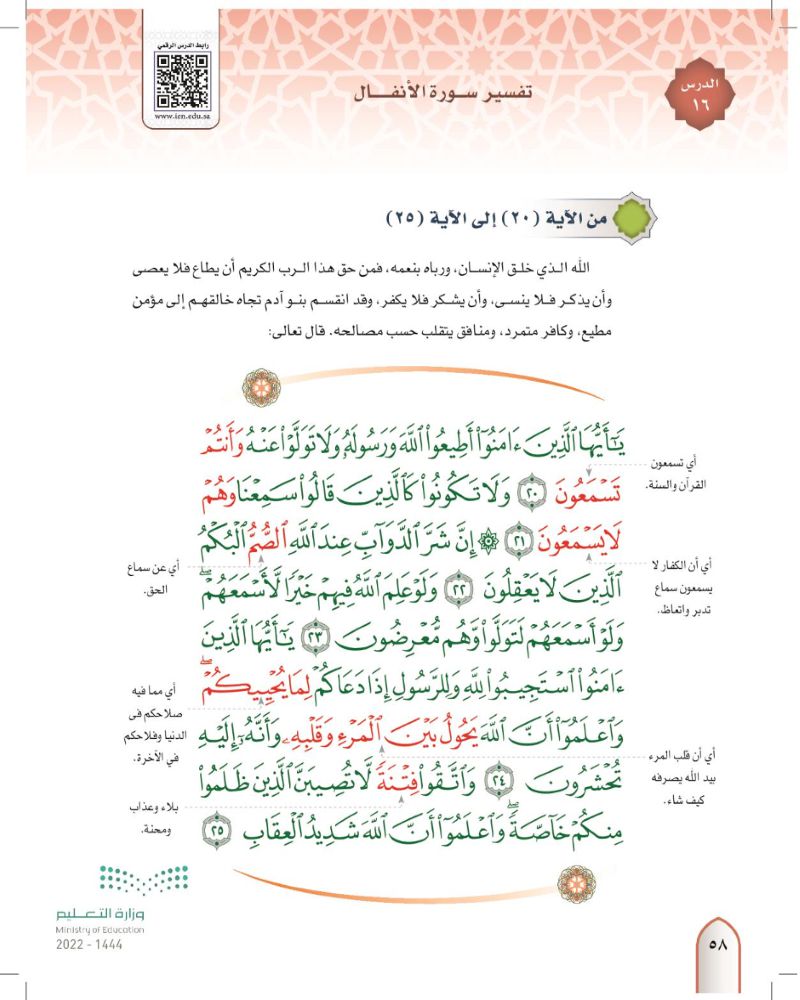 رابط الدرس الرقمي
www.ien.edu.sa
الدرس
١٦
تفسير سورة الأنفال
من الآية (٢٠) إلى الآية (٢٥)
الله الذي خلق الإنسان، ورباه بنعمه، فمن حق هذا الرب الكريم أن يطاع فلا يعصى
وأن يذكر فلا ينسى، وأن يشكر فلا يكفر، وقد انقسم بنو آدم تجاه خالقهم إلى مؤمن
مطيع، وكافر متمرد، ومنافق يتقلب حسب مصالحه. قال تعالى:
يَٰٓأَيُّهَا ٱلَّذِينَ ءَامَنُوٓاْ أَطِيعُواْ ٱللَّهَ وَرَسُولَهُۥ وَلَا تَوَلَّوۡاْ عَنۡهُ وَأَنتُمۡ
تَسۡمَعُونَ ٢٠ وَلَا تَكُونُواْ كَٱلَّذِينَ قَالُواْ سَمِعۡنَا وَهُمۡ
لَا يَسۡمَعُونَ ٢١ ۞ إِنَّ شَرَّ ٱلدَّوَآبِّ عِندَ ٱللَّهِ ٱلصُّمُّ ٱلۡبُكۡمُ
ٱلَّذِينَ لَا يَعۡقِلُونَ ٢٢ وَلَوۡ عَلِمَ ٱللَّهُ فِيهِمۡ خَيۡرٗا لَّأَسۡمَعَهُمۡۖ
وَلَوۡ أَسۡمَعَهُمۡ لَتَوَلَّواْ وَّهُم مُّعۡرِضُونَ ٢٣ يَٰٓأَيُّهَا ٱلَّذِينَ
ءَامَنُواْ ٱسۡتَجِيبُواْ لِلَّهِ وَلِلرَّسُولِ إِذَا دَعَاكُمۡ لِمَا يُحۡيِيكُمۡۖ
وَٱعۡلَمُوٓاْ أَنَّ ٱللَّهَ يَحُولُ بَيۡنَ ٱلۡمَرۡءِ وَقَلۡبِهِۦ وَأَنَّهُۥٓ إِلَيۡهِ
تُحۡشَرُونَ ٢٤ وَٱتَّقُواْ فِتۡنَةٗ لَّا تُصِيبَنَّ ٱلَّذِينَ ظَلَمُواْ
مِنكُمۡ خَآصَّةٗۖ وَٱعۡلَمُوٓاْ أَنَّ ٱللَّهَ شَدِيدُ ٱلۡعِقَابِ ٢٥
أي تسمعون
القرآن والسنة.
أي أن الكفار لا
يسمعون سماع
تدبر واتعاظ.
أي عن سماع
الحق.
أي مما فيه
صلاحكم في
الدنيا وفلاحكم
في الآخرة.
أي أن قلب المرء
بيد الله يصرفه
كيف شاء.
بلاء وعذاب
ومحنة.
وزارة التعليم
Ministry of Education
2022 - 1444
٥٨